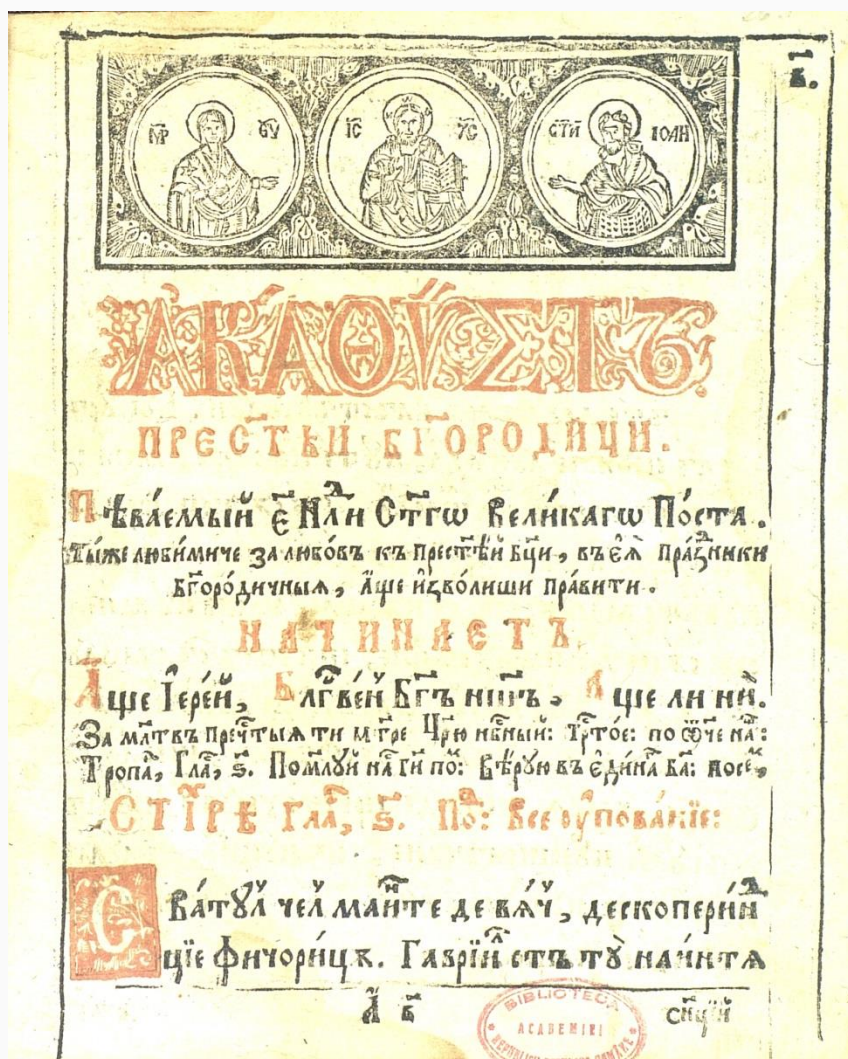 в҃.
М҃Р Ѳ҃У І҃С Х҃С СТ҃Й ІОАН
АКАѲѴСТЪ.
ПРЕСТ҃ѢЙ БГ҃ОРОДИЦИ.
Пѣва́емый є҃ Нлⷣи Ст҃гѡ Вели́кагѡ По́ста.
Ты́же любимиче за любо́въ къ прест҃ѣй бц҃и, въ єѧ̀ пра́зⷣники
бг҃оро́дичныѧ, а҆́ще и҆зво́лиши пра́вити.
НАЧИНАЕТЪ
А҆́ще І҆ере́й, Блгⷭ҇ве́й Бг҃ъ на́шъ, А҆ще ли ни̑.
За мл҃твъ преч҃тыѧ ти мт҃ре Цр҃ю нбⷭ҇ный: Трⷭ҇то́е: по ѿче на́:
Тропа̑, Гла̑, ѕ҃. Пом́лꙋй на̑ ги҃ по̑: вѣ́рꙋю въ є҆ди́на̑ ба҃:
СТИ҃РѢ Гла̑, ѕ҃. Поⷣ: Все ᲂу҆пова́нїе:
Сва́тꙋл чел ма́йнте де вѧ́ч, дескопери́нⷣ
цїе фичори́цъ. Гаврїи́л стъ тꙋ̀ наи́нтѧ
А҃ в҃ сⷩ҇цїй
BIBLIOTECA
ACADEMIEI
REPUBLICII